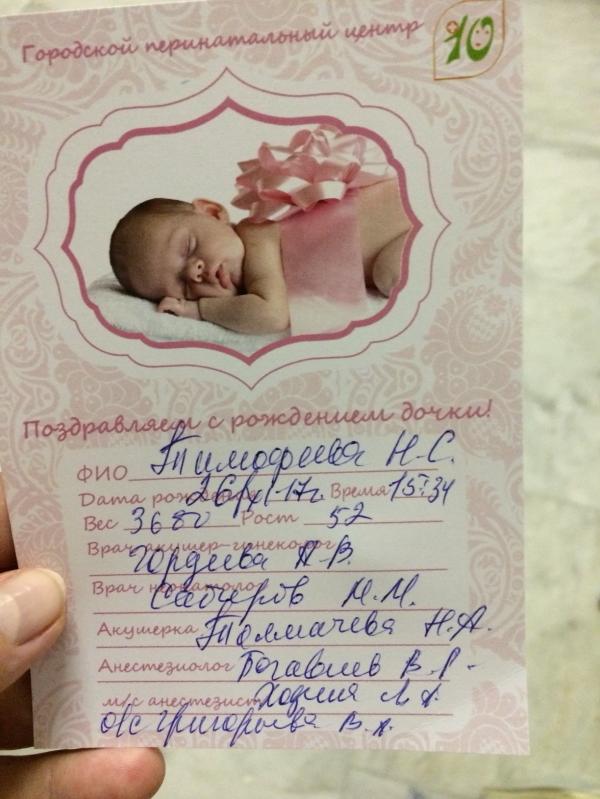 Городской перинатальный центр
10
Поздравляем с рождением дочки!
ФИО Тимофеева Н.С.
Дата рождения 26/ -17г Время 15:34
Вес 3680 Рост 52
Врач акушер-гинеколог Гордеева В.
Врач неонатолог М.М.
Акушерка Толмачева Н.А.
Анестезиолог В.
м/с анестезист
о/с Григорьева В.А.